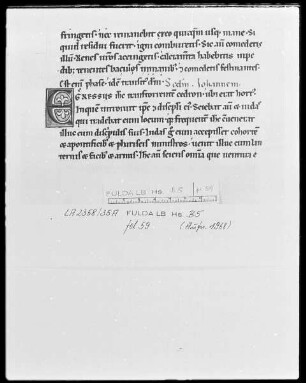 frangetis. nec remanebit ex eo quicquam usq; mane. Si
quid residuum fuerit. igni comburetis. Sic autem comedetis
illum. Renes vestros accingetis. calceamenta habebitis in pe
dib; tenentes baculos in manib; & comedetis festinantes.
Est enim phase. id est transitus dni. Scdm Johannem.
Egressus ihc trans torrentem cedron. ubi erat hort
in quem introivit ipse & discipli ei. Sciebat autem & iudas
qui tradebat eum locum. quia frequenter ihc convenerat
illuc cum discipulis suis. Judas ergo cum accepisset cohortem
& a pontificib; & phariseis ministros. venit illuc cum lan
ternis & facib; & armis. Ihc autem sciens omnia que ventura e
FULDA LB Hs. 35 F 59
LA 2358/35A FULDA LB Hs. 35
fol. 59 1968)